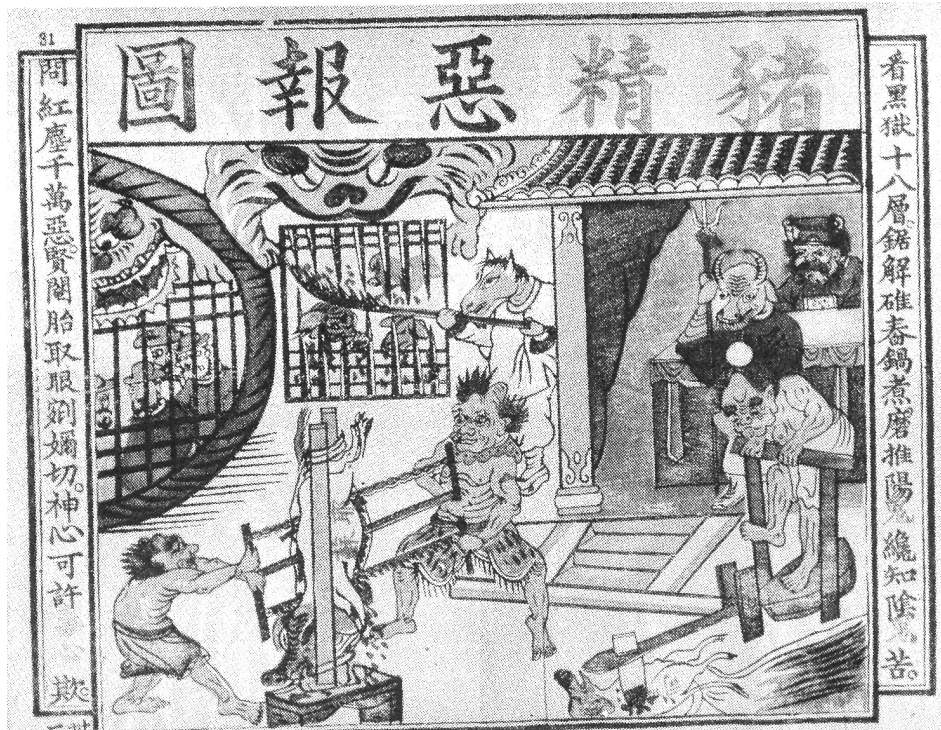 31
豬精惡報圖
看黑獄十八層。鋸解碓舂鍋煮磨推陽纔知陰苦。
問紅塵千萬惡。賢閹胎取眼剜嬭切。神心可許欺。